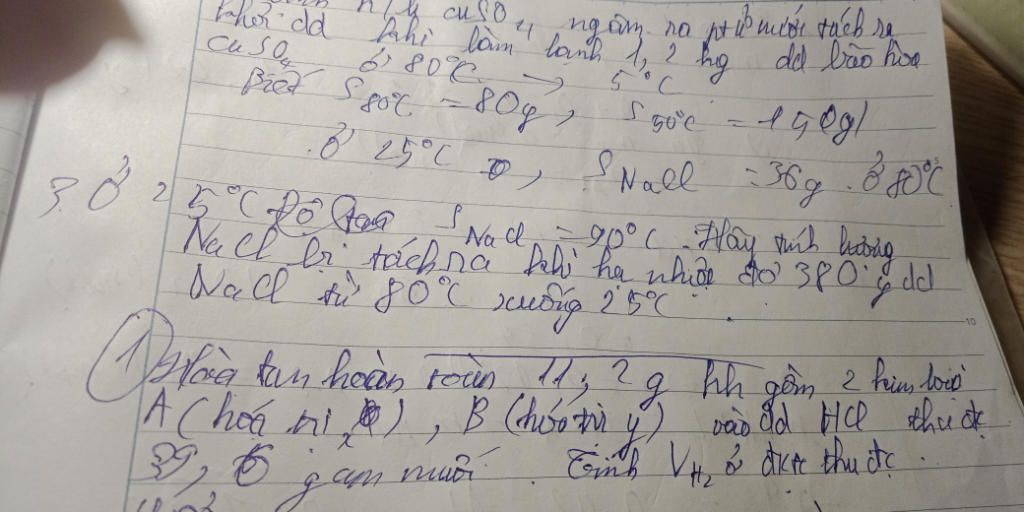 CuSO4 ngậm ra ptử nước tách ra
khỏi dd khi làm lạnh 1,2 hg dd bão hòa
CuSO4 ở 80°C → 5°C
Biết S80°C = 80g, S50°C = 150g/
ở 25°C, SNaCl = 36g. Ở 80°C
3. Ở 25°C Độ tan SNaCl = 90°C. Hãy tính lượng
NaCl bị tách ra khi hạ nhiệt độ 380g dd
NaCl từ 80°C xuống 25°C.
10
1 Hòa tan hoàn toàn 11,2g hh gồm 2 kim loại
A (hoá trị x), B (hoá trị y) vào dd HCl thu đc
39,6 gam muối. Tính VH2 ở đktc thu đc.